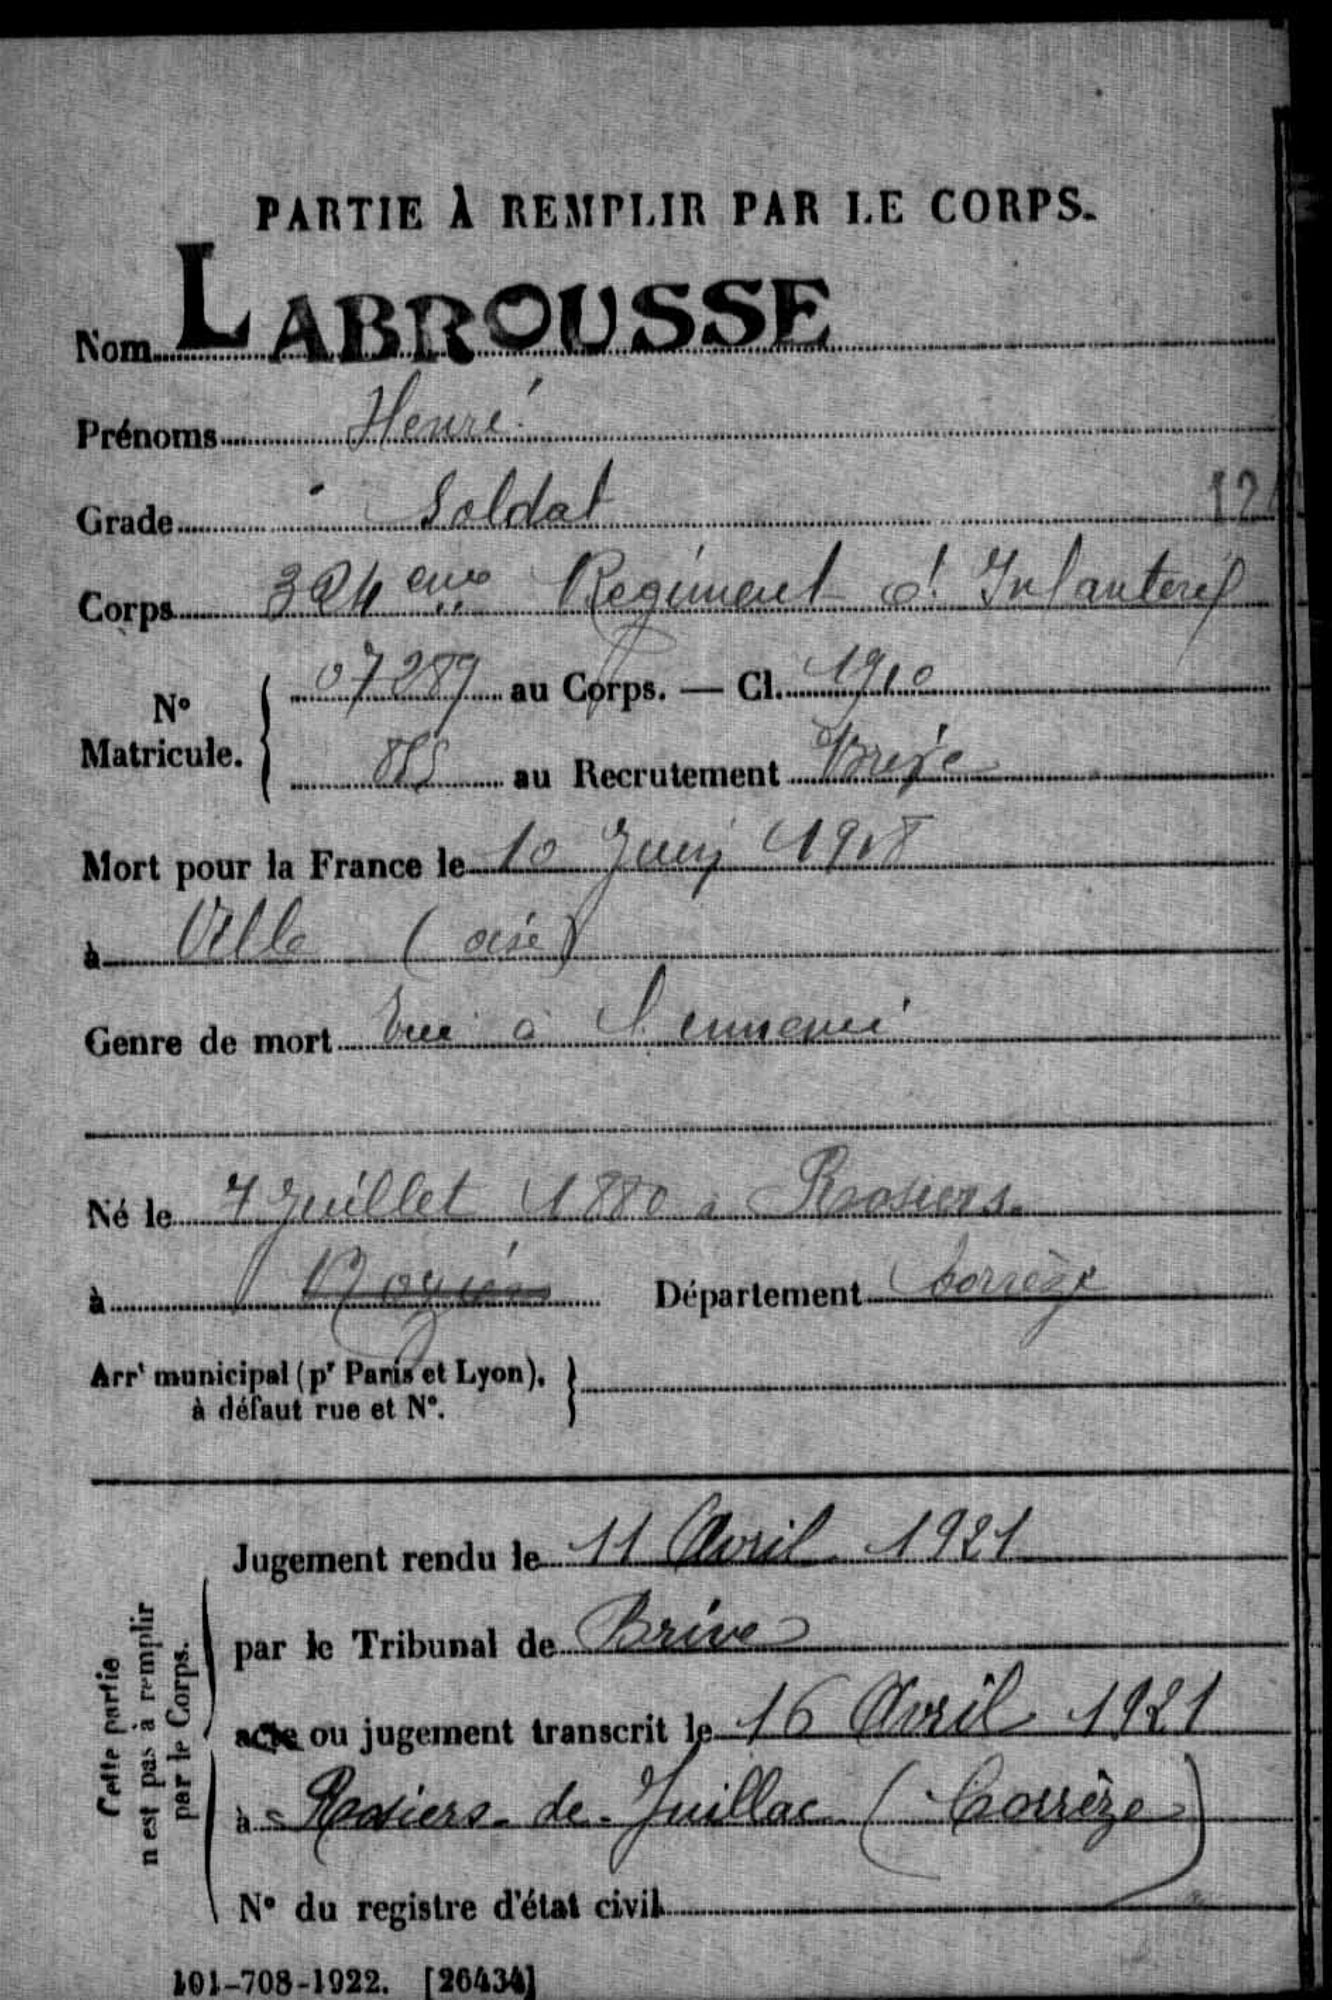 PARTIE À REMPLIR PAR LE CORPS.
Nom LABROUSSE
Prénoms Henri
Grade Soldat
12
Corps 324eme Regiment d'Infanterie
N° Matricule. 07289 au Corps. — Cl. 1910
au Recrutement Brive
Mort pour la France le 10 Juin 1918
à Ville (oise)
Genre de mort tué à l'ennemi
Né le 7 Juillet 1880 a Rosiers.
à Département Corrèze
Arrt municipal (pr Paris et Lyon),
à défaut rue et N°.
Cette partie
n'est pas à remplir
par le Corps.
Jugement rendu le 11 Avril 1921
par le Tribunal de Brive
acte ou jugement transcrit le 16 Avril 1921
à Rosiers-de-Juillac (Corrèze)
N° du registre d'état civil
101-708-1922. [26434]